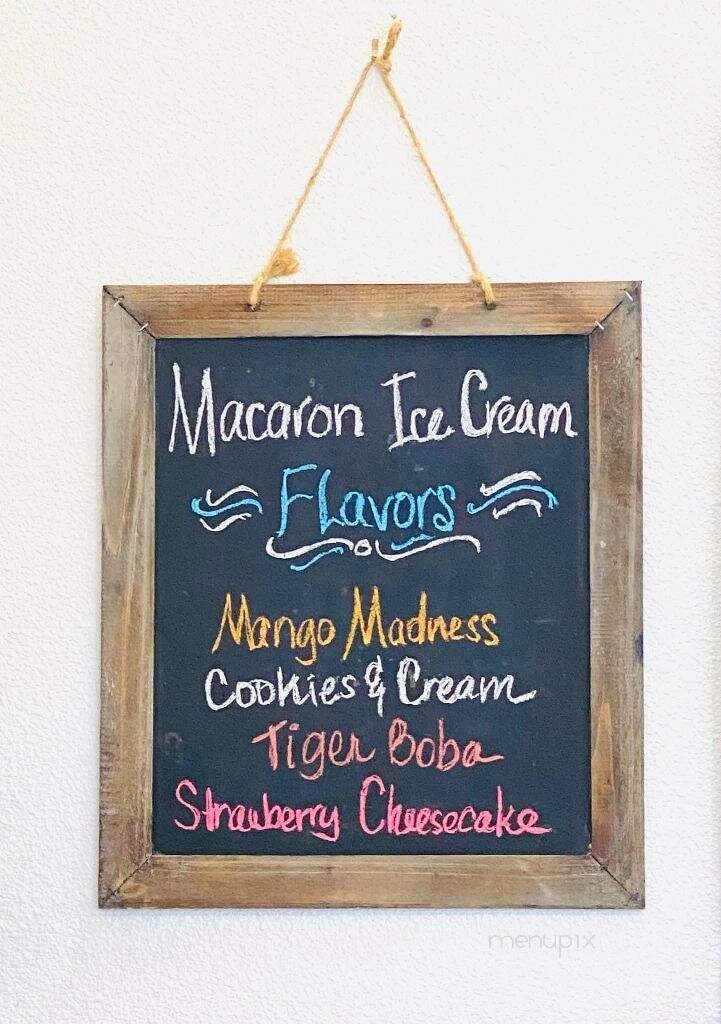 Macaron Ice Cream
Flavors
Mango Madness
Cookies & Cream
Tiger Boba
Strawberry Cheesecake
menupix